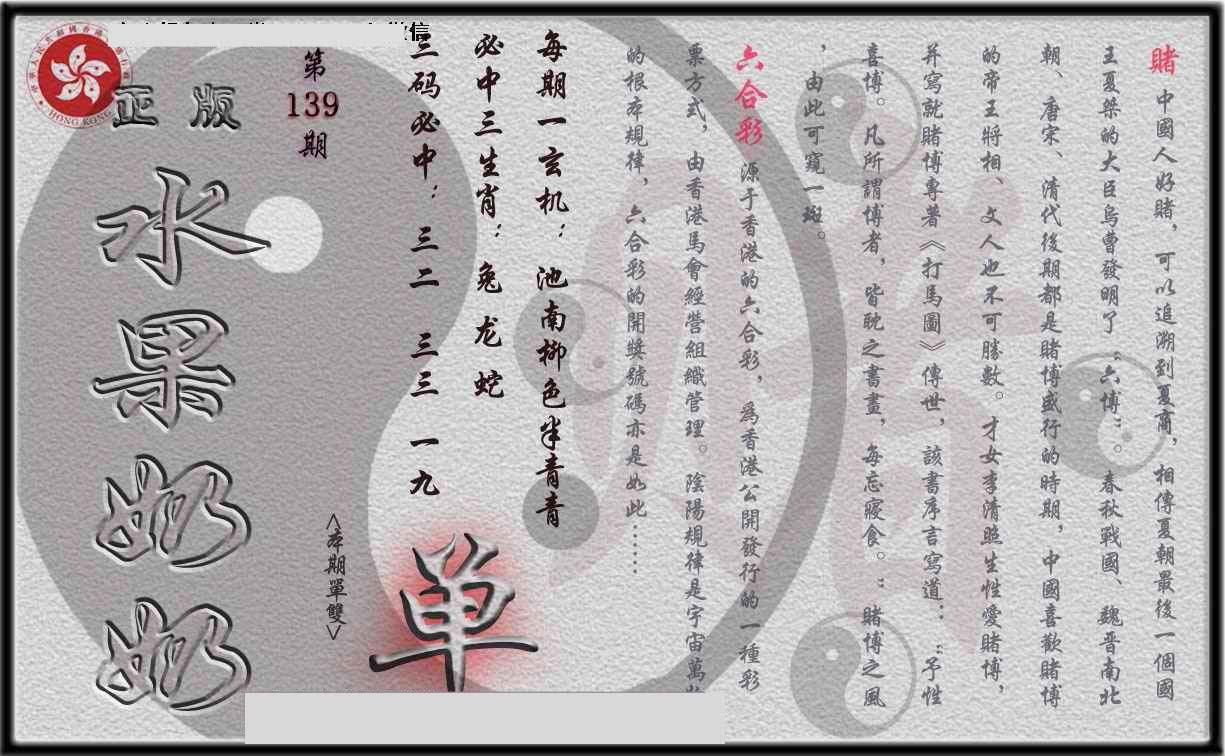 賭 中國人好賭，可以追溯到夏商，相傳夏朝最後一個國
王夏桀的大臣烏曹發明了“六博”。春秋戰國、魏晋南北
朝、唐宋、清代後期都是賭博盛行的時期，中國喜歡賭博
的帝王將相、文人也不可勝數。才女李清照生性愛賭博，
并寫就賭博專著《打馬圖》傳世，該書序言寫道：“予性
喜博。凡所謂博者，皆耽之書畫，每忘寢食。”賭博之風
，由此可窺一斑。
六合彩 源于香港的六合彩，爲香港公開發行的一種彩
票方式，由香港馬會經營組織管理。陰陽規律是宇宙萬
的根本規律，六合彩的開獎號碼亦是如此……
每期一玄机：池南柳色半青青
必中三生肖：兔龙蛇
三码必中：三二 三三 一九
第139期
<本期單雙>
单
正版
水果奶奶
HONG KONG